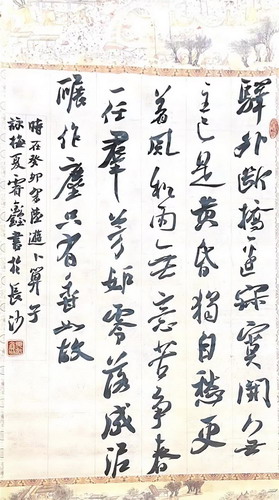 驛外斷橋邊寂寞開無
主已是黄昏獨自愁更
着風和雨無意苦争春
一任羣芳妬零落成泥
碾作塵只有香如故
時在癸卯陸游卜算子
詠梅夏書於長沙